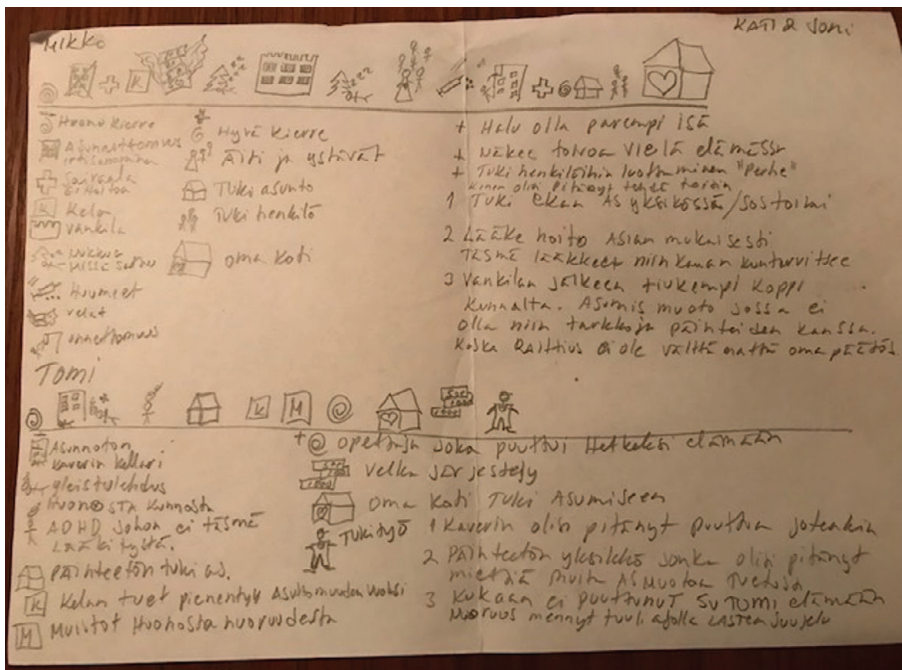 MIKKO
KATI & Joni
K
Huono kierre
Asunnottomuus
Sairaala
Ei hoitoa
K Kela
Vankila
Nukkuu
missä sattuu
Huumeet
velat
onnettomuus
Hyvä kierre
Äiti ja ystävät
Tuki asunto
Tuki henkilö
oma koti
+ Halu olla parempi isä
+ Näkee toivoa vielä elämässä
+ Tuki henkilöihin luottaminen "Perhe"
olisi pitänyt tehdä toisin
1 Tuki AS yksikössä/sostoimi
2 Lääke hoito Asian mukaisesti
Täsmä lääkkeet niin kauan kun tarvitsee
3 Vankilan jälkeen tiukempi koppi
kunnalta. Asumis muoto jossa ei
olla niin tarkkoja päihteiden kanssa.
Koska Raittius ei ole välttämättä oma päätös
Tomi
K M
Asunnoton
kaverin kellari
yleistulehdus
Huonosta kunnosta
ADHD johon ei täsmä
lääkitystä.
Päihteetön tuki as.
K Kelan tuet pienentyy Asumismuodon vuoksi
M Muistot Huonosta nuoruudesta
+ @ opettaja joka puuttui Hetkeksi elämään
velka järjestely
oma koti Tuki Asumiseen
Tukityö
1 Kaverin olisi pitänyt puuttua jotenkin
2 Päihteetön yksikkö jonka olisi pitänyt
miettiä muita AS muotoa
3 Kukaan ei puuttunut Tomi elämään
Nuoruus mennyt tuuli ajolla Lasten suojelu